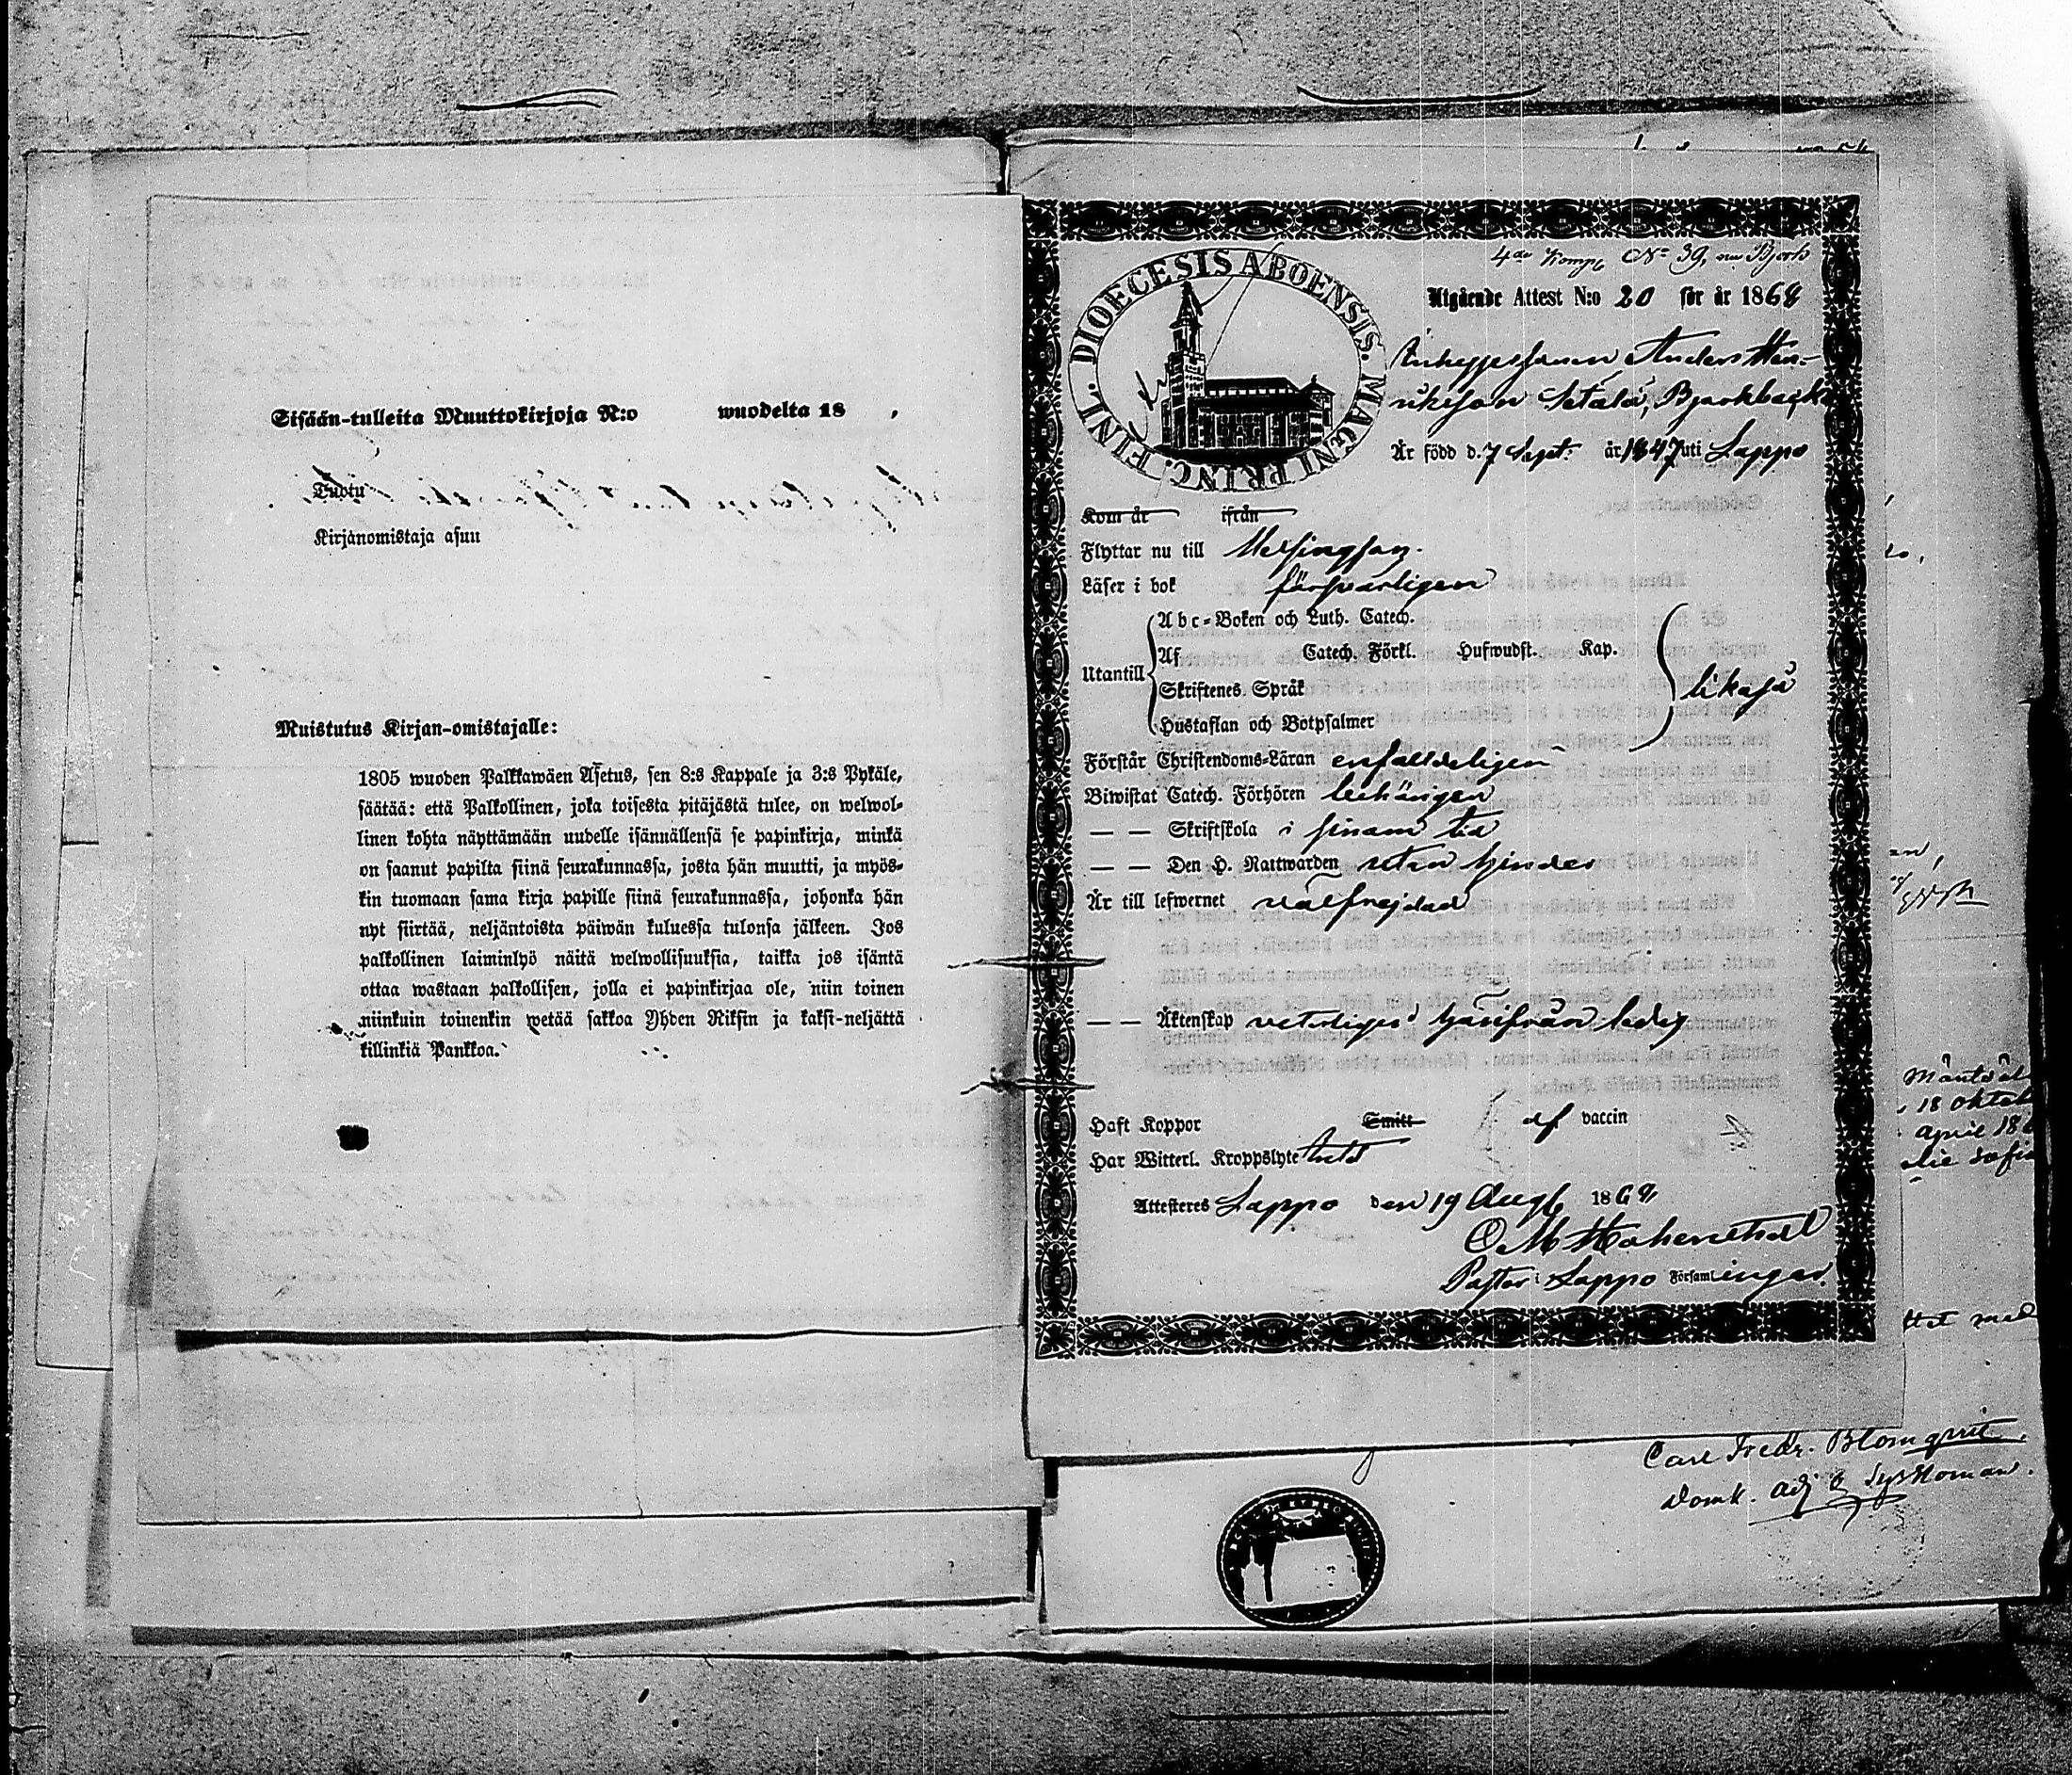 Sisään-tulleita Muuttokirjoja N:o wuodelta 18 ,
Tuotu
Kirjanomistaja asuu
Muistutus Kirjan-omistajalle:
1805 wuoden Palkkawäen Asetus, sen 8:s Kappale ja 3:s Pykäle,
säätää: että Palkollinen, joka toisesta pitäjästä tulee, on welwol-
linen kohta näyttämään uudelle isännällensä se papinkirja, minkä
on saanut papilta siinä seurakunnassa, josta hän muutti, ja myös-
kin tuomaan sama kirja papille siinä seurakunnassa, johonka hän
nyt siirtää, neljäntoista päiwän kuluessa tulonsa jälkeen. Jos
palkollinen laiminlyö näitä welwollisuuksia, taikka jos isäntä
ottaa wastaan palkollisen, jolla ei papinkirjaa ole, niin toinen
niinkuin toinenkin wetää sakkoa Yhden Riksin ja kaksi-neljättä
killinkiä Pankkoa.
4de Komp. No 39,
DIOECESIS ABOENSIS. MAGNI PRINC. FINL.
Utgående Attest N:o 20 för år 1868
Anders Hen-
riksson Setälä, Bjorkbacka
Är född d. 7 Sept: år 1847 uti Lappo
Kom år ifrån
Flyttar nu till Helsingfors.
Läser i bok försvarligen
Utantill
Abc-Boken och Luth. Catech.
Af Catech. Förkl. Hufwudst. Kap.
Skriftenes Språk
likaså
Hustaflan och Botpsalmer
Förstår Christendoms-Läran enfaldeligen
Biwistat Catech. Förhören behörigen
— — Skriftskola i sinom tid
— — Den H. Nattwarden utan hinder
Är till lefwernet välfrejdad
— — Äktenskap veterligen härifrån ledig
Haft Koppor Smitt af vaccin
Har Witterl. Kroppslyte intet
Attesteres Lappo den 19 Aug 1868
O M Hohenthal
Pastor i Lappo Församlingar.
18 Oktob
April 18
Sofia
med
Carl Fredr. Blomqvist.
Domk. adj & Sysloman.